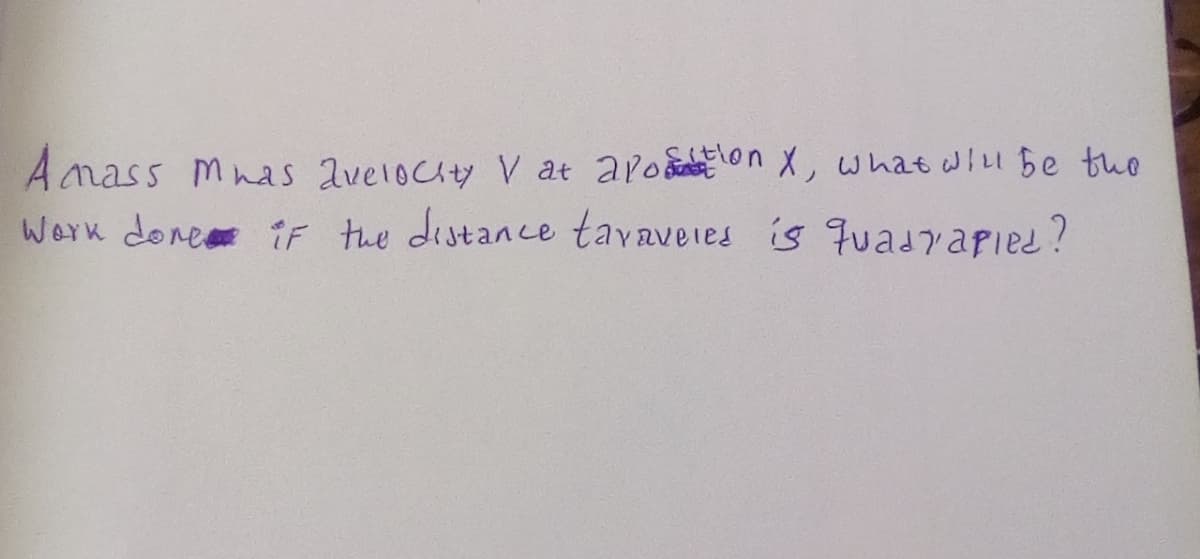 A mass m has a velocity V at a position X, what will be the
Work done if the distance taraveled is quadrapled?